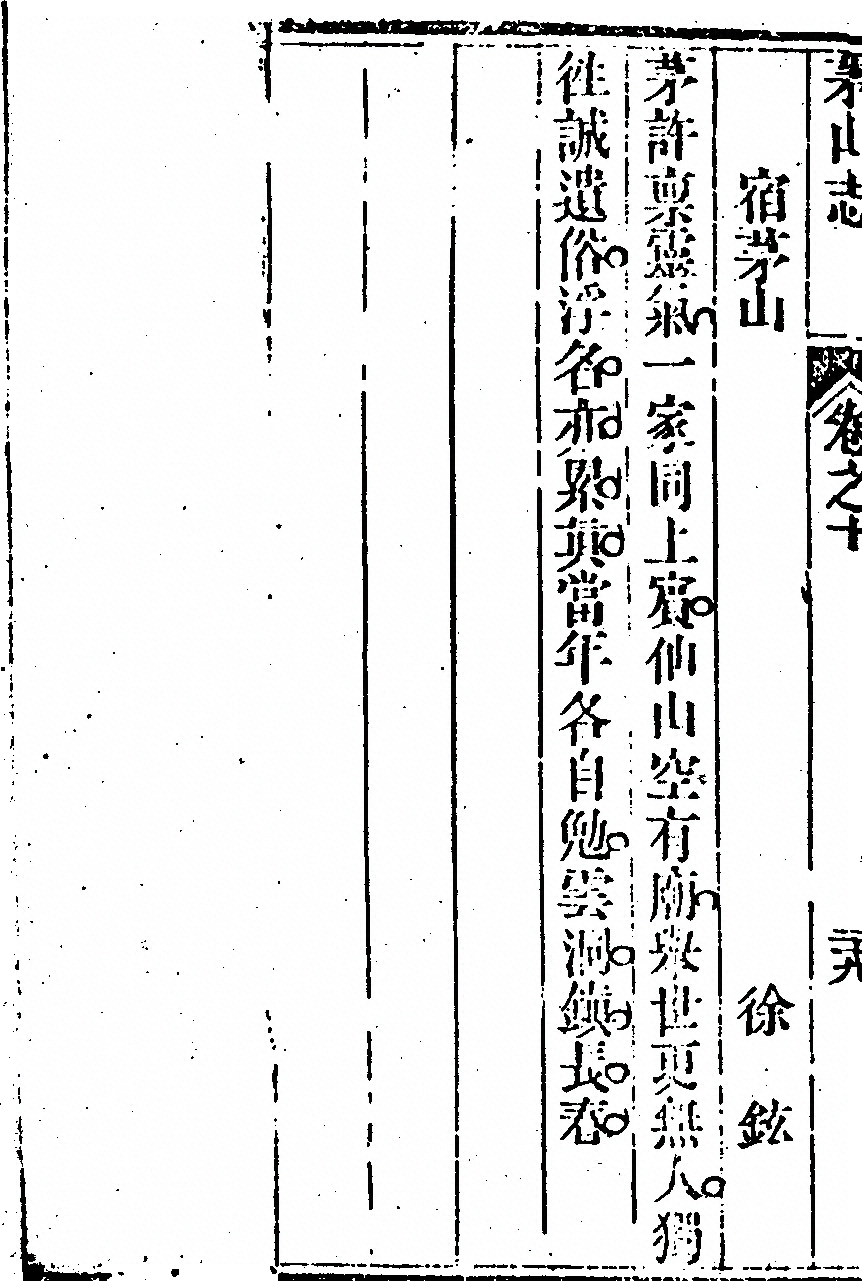 茅山志 卷之十
宿茅山 徐鉉
茅許稟靈氣一家同上賓仙山空有廟舉世更無人獨
徃誠遺俗浮名亦累眞當年各自勉雲洞鎖長春